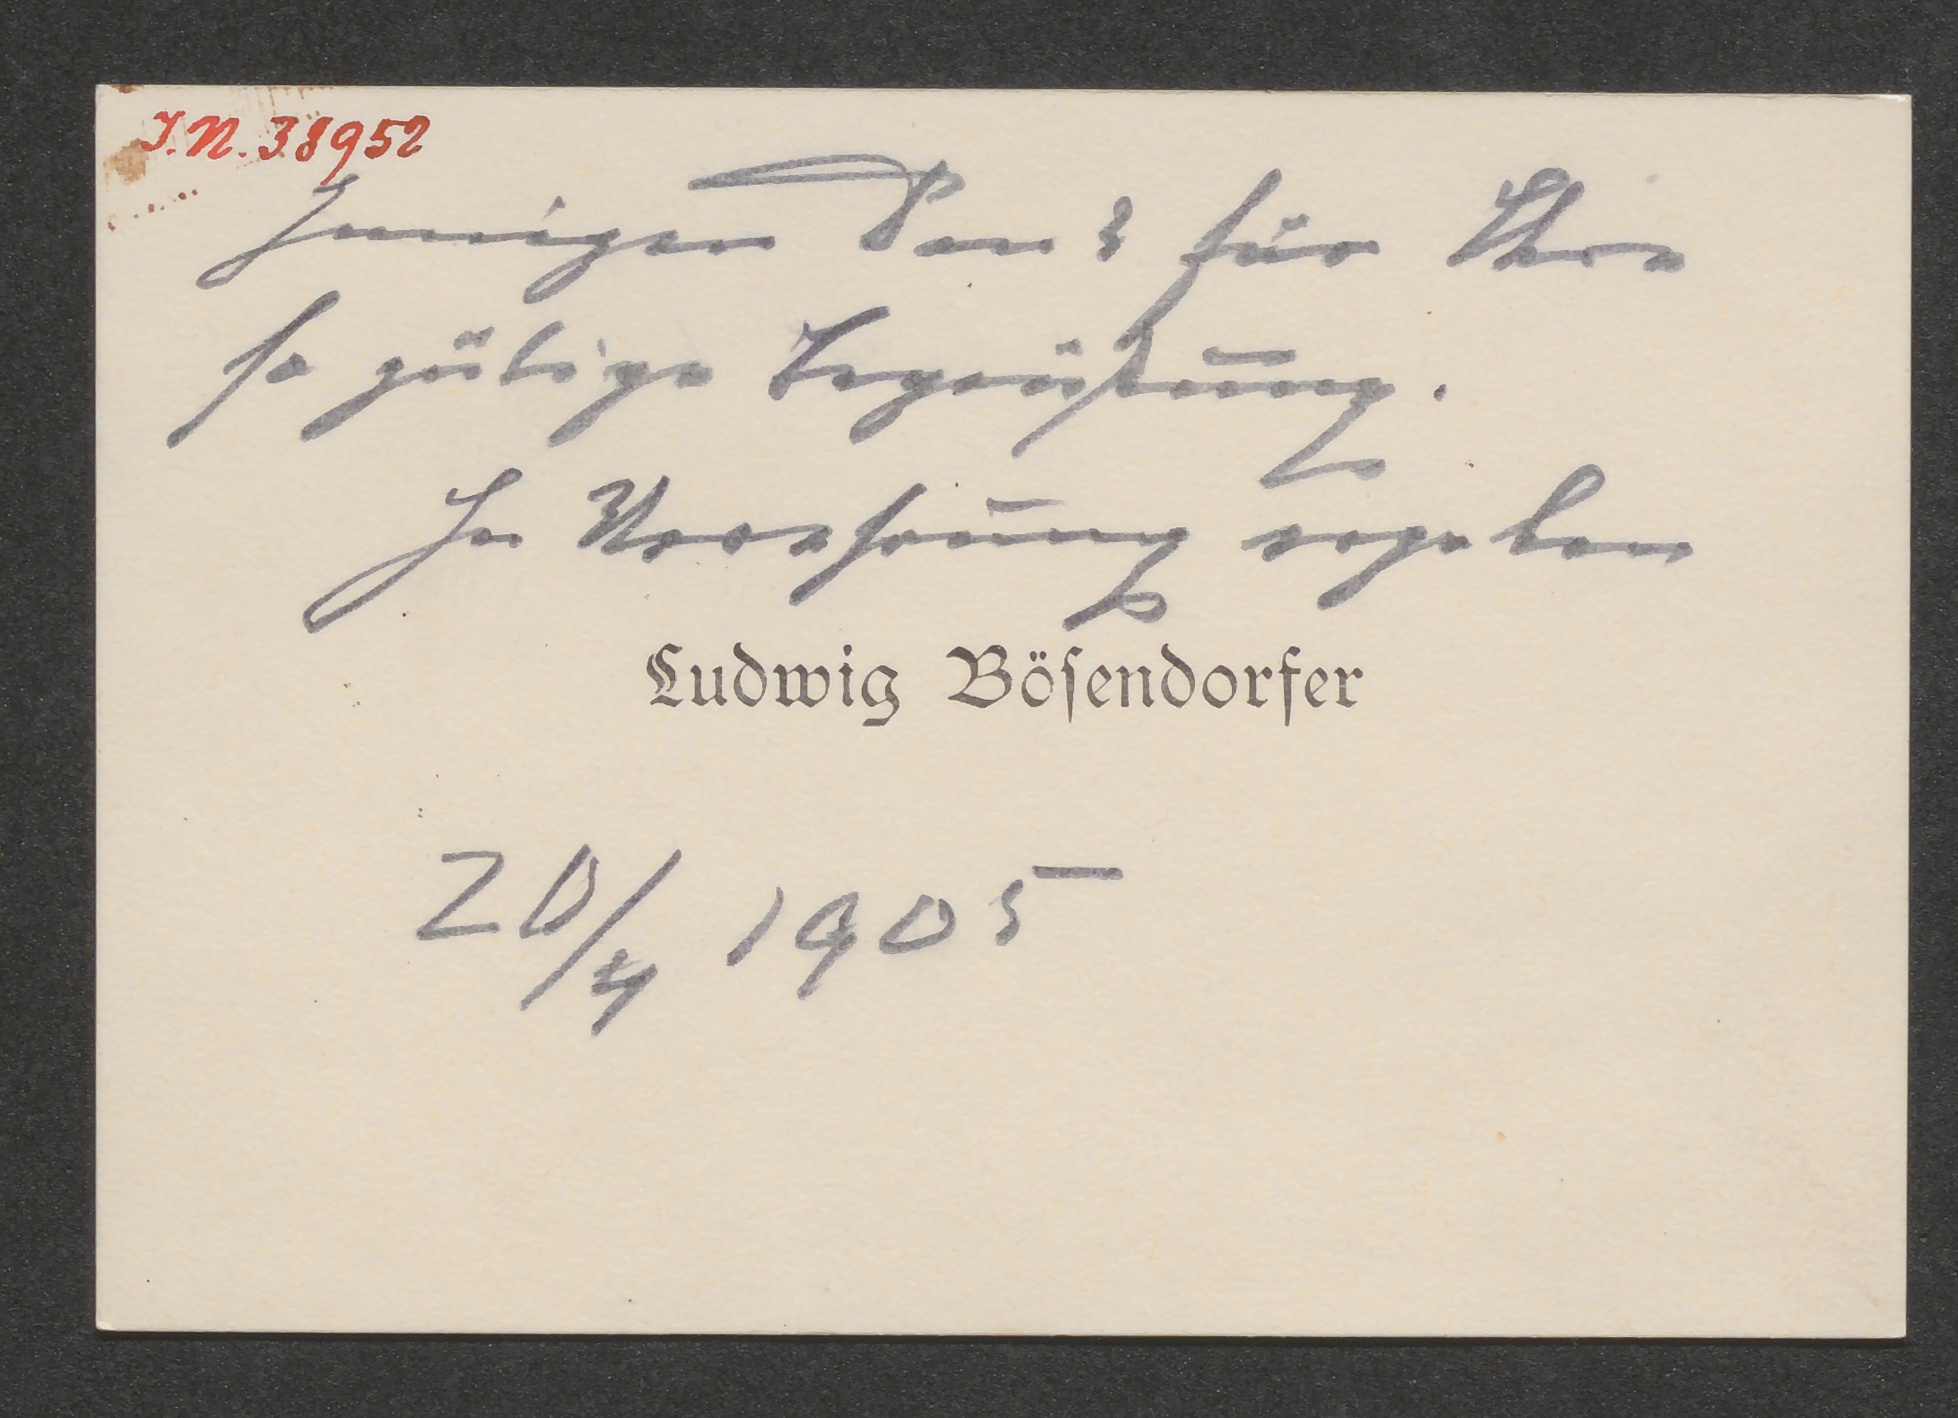 I.N. 38952
Innigen Dank für Ihre
so gütige Begrüßung.
In Verehrung ergeben
Ludwig Bösendorfer
20/4 1905